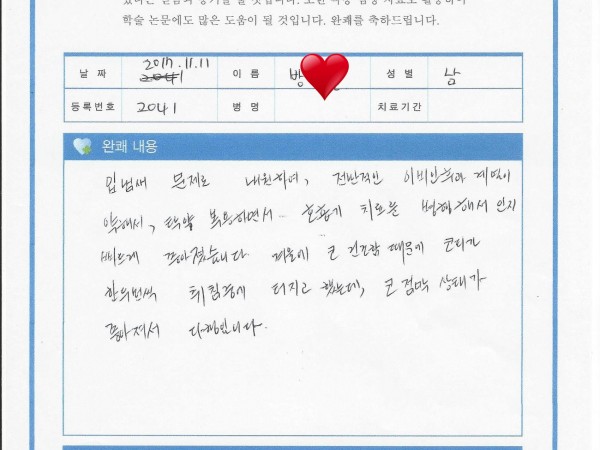 학술 논문에도 많은 도움이 될 것입니다. 완쾌를 축하드립니다.
날 짜 2017.11.11 이 름 방 성 별 남
등록번호 2041 병 명 치료기간
완쾌 내용
입냄새 문제로 내원하여, 전반적인 이비인후과 계열이
약해서, 탕약 복용하면서 호흡기 치료를 병행해서 인지
빠르게 좋아졌습니다. 겨울에 코 건조함 때문에 코피가
한두번씩 취침중에 터지고 했는데, 코 점막 상태가
좋아져서 다행입니다.